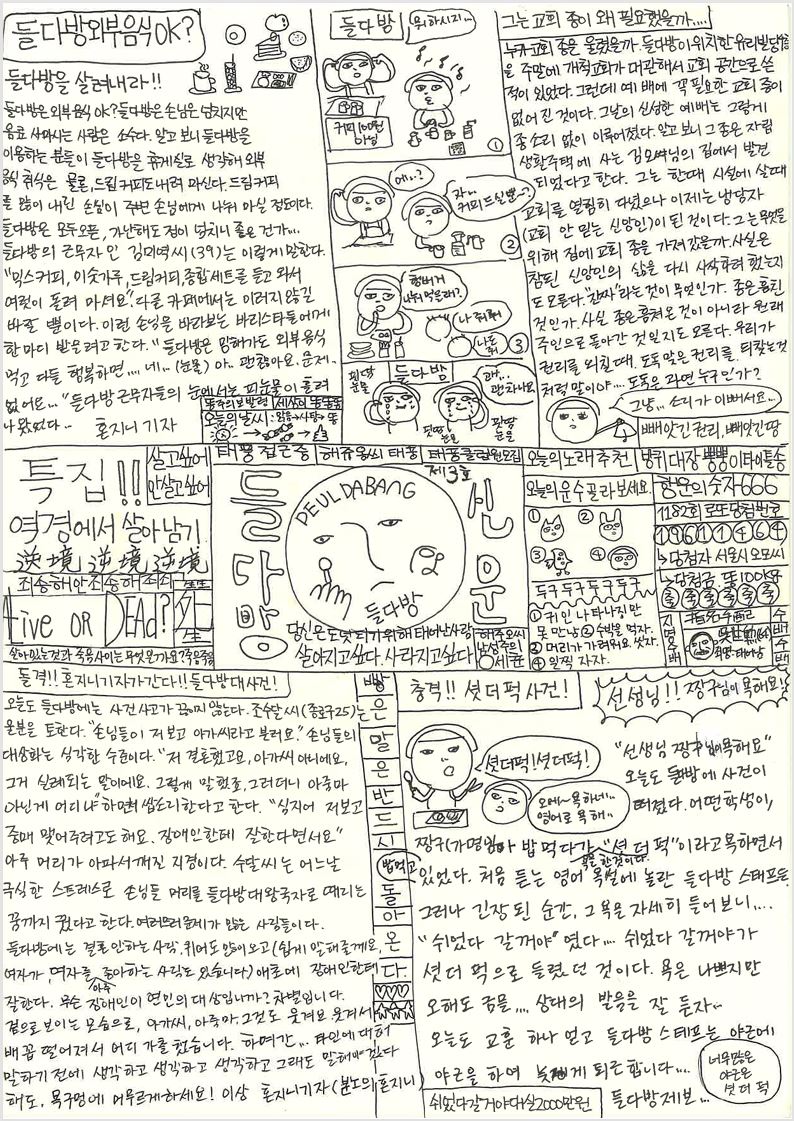 들다방외부음식OK?
들다방을 살려내라!!
들다방은 외부음식 OK? 들다방은 손님은 넘치지만
음료 사마시는 사람은 소수다. 알고 보니 들다방을
이용하는 분들이 들다방을 휴게실로 생각해 외부
음식 취식은 물론, 드립커피도 내려 마신다. 드립커피
를 많이 내린 손님이 주변 손님에게 나눠 마실 정도이다.
들다방은 모두오픈, 가난해도 정이 넘치니 좋은 건가...
들다방의 근무자 인 김미역씨(39)는 이렇게 말한다.
"믹스커피, 미숫가루, 드립커피, 종합세트를 들고 와서
여럿이 돌려 마셔요" 다른 카페에서는 이러지 않길
바랄 뿐이다. 이런 손님을 바라보는 바리스타들에게
한마디 받으려고 한다. "들다방은 망해가도 외부음식
먹고 다들 행복하면.... 네.. (눈물) 아.. 괜찮아요. 문제..
없어요..." 들다방 근무자들의 눈에서는 피눈물이 흘러
나왔었다.. 혼지니 기자
오늘의 날씨:
들다방
뭐하시지...
커피 1000원
아님
①
에..?
자..
커피 드실분~?
②
햄버거
나눠먹을래?
나 줘줘
나도
줘
③
핏땀
눈물
들다방
하하..
괜차나요
핏땀
눈물
핏땀
눈물
그는 교회 종이 왜 필요했을까....
누가 교회 종을 울렸을까. 들다방이 위치한 유리빌딩
을 주말에 개척교회가 대관해서 교회 공간으로 쓴
적이 있었다. 그런데 예배에 꼭 필요한 교회 종이
없어진 것이다. 그날의 신성한 예배는 그렇게
종소리 없이 이루어졌다. 알고 보니 그 종은 자립
생활주택에 사는 김모씨님의 집에서 발견
되었다고 한다. 그는 한때 시설에 살때
교회를 열심히 다녔으나 이제는 냉담자
(교회 안 믿는 신앙인)이 된 것이다. 그는 무엇을
위해 집에 교회 종을 가져갔을까. 사실은
참된 신앙인의 삶을 다시 시작하려 했는지
도 모른다. "감자"라는 것이 무엇인가. 종은 훔친
것인가. 사실 종은 훔쳐온 것이 아니라 원래
주인으로 돌아간 것일지도 모른다. 우리가
권리를 외칠때, 도둑맞은 권리를 되찾는것
처럼 말이야.... 도둑은 과연 누구인가?
그냥... 소리가 이뻐서요..
빼앗긴 권리, 빼앗긴 땅
특집!!
살고싶어
안살고싶어
역경에서 살아남기
逆境 逆境 逆境
Live OR DEAd?
태풍 접근중
해류음씨 태풍
태풍클럽원모집
오늘의노래추천
방귀대장 뿡뿡이타이틀송
제3호
들다방
신문
DEULDABANG
들다방
당신은 도덧타기 위해 태어난사람
살아지고싶다. 사라지고싶다.
오늘의 운수골라보세요.
① ②
③ ④
두구두구두구두구
① 귀인 나타나짐만
못 만남 ② 수박을 먹자.
③ 머리가 가려워요. 씻자.
④ 일찍 자자.
행운의숫자666
1182회 로또당첨번호
1 9 6 1 1 4 6 4
→당첨자 서울시 오모씨
→당첨금 똥100KG
지명수배
돌격!! 혼지니기자가간다!! 들다방대사건!
오늘도 들다방에는 사건사고가 끊이지 않는다. 조수달씨(종로구25)는
울분을 토한다. "손님들이 저보고 아가씨라고 불러요." 손님들의
대상화는 심각한 수준이다. "저 결혼했고요, 아가씨 아니에요,
그거 실례되는 말이에요. 그렇게 말했죠, 그러더니 아줌마
아닌게 어디냐" 하며 쌉소리한다고 한다. "심지어 저보고
중매 맺어주려고도 해요. 장애인한테 잘한다면서요"
아주 머리가 아파서 깨진 지경이다. 수달씨는 어느날
극심한 스트레스로 손님들 머리를 들다방 대왕국자로 때리는
꿈까지 꿨다고 한다. 여러므로 문제가 많은 사람들이다.
들다방에는 결혼 안하는 사람, 퀴어도 많이오고 (쉽게 말해줄께요,
여자가, 여자를 좋아하는 사람도 있습니다) 애초에 장애인한테
아주
잘한다. 무슨 장애인이 연민의 대상입니까? 차별입니다.
겉으로 보이는 모습으로, 아가씨, 아줌마. 그것도 웃겨요 웃겨서
배꼽 떨어져서 어디 가출했습니다. 하며간... 타인에 대해
말하기 전에 생각하고 생각하고 생각하고 그래도 말해야겠다
해도, 목구멍에 머무르게하세요! 이상 혼지니기자(분노의혼지니)
빵
은
말
은
반
드
시
밥먹고
돌
아
온
다.
충격!! 셧더퍽 사건!
셧더퍽! 셧더퍽!
오메~ 욕하네..
영어로 욕해..
선생님!! 짱구님이 욕해요!
"선생님 짱구님이욕해요"
오늘도 들방에 사건이
떠졌다. 어떤학생이,
짱구(가명임)가 밥 먹다가 "셧 더 퍽"이라고욕하면서
욕을 한것이다.
있었다. 처음 듣는 영어 욕설에 놀란 들다방 스태프들
그러나 긴장된 순간, 그 욕을 자세히 들어보니....
"쉬었다 갈꺼야" 였다.... 쉬었다 갈꺼야가
셧 더 퍽 으로 들렸던 것이다. 욕은 나쁘지만
오해도 금물.... 상대의 발음을 잘 듣자~
오늘도 교훈 하나 얻고 들다방 스테프는 야근에
야근을 하여 늦게 퇴근합니다....
쉬었다갈거야대실2000만원
들다방제보...
너무많은
야근은
셧 더 퍽